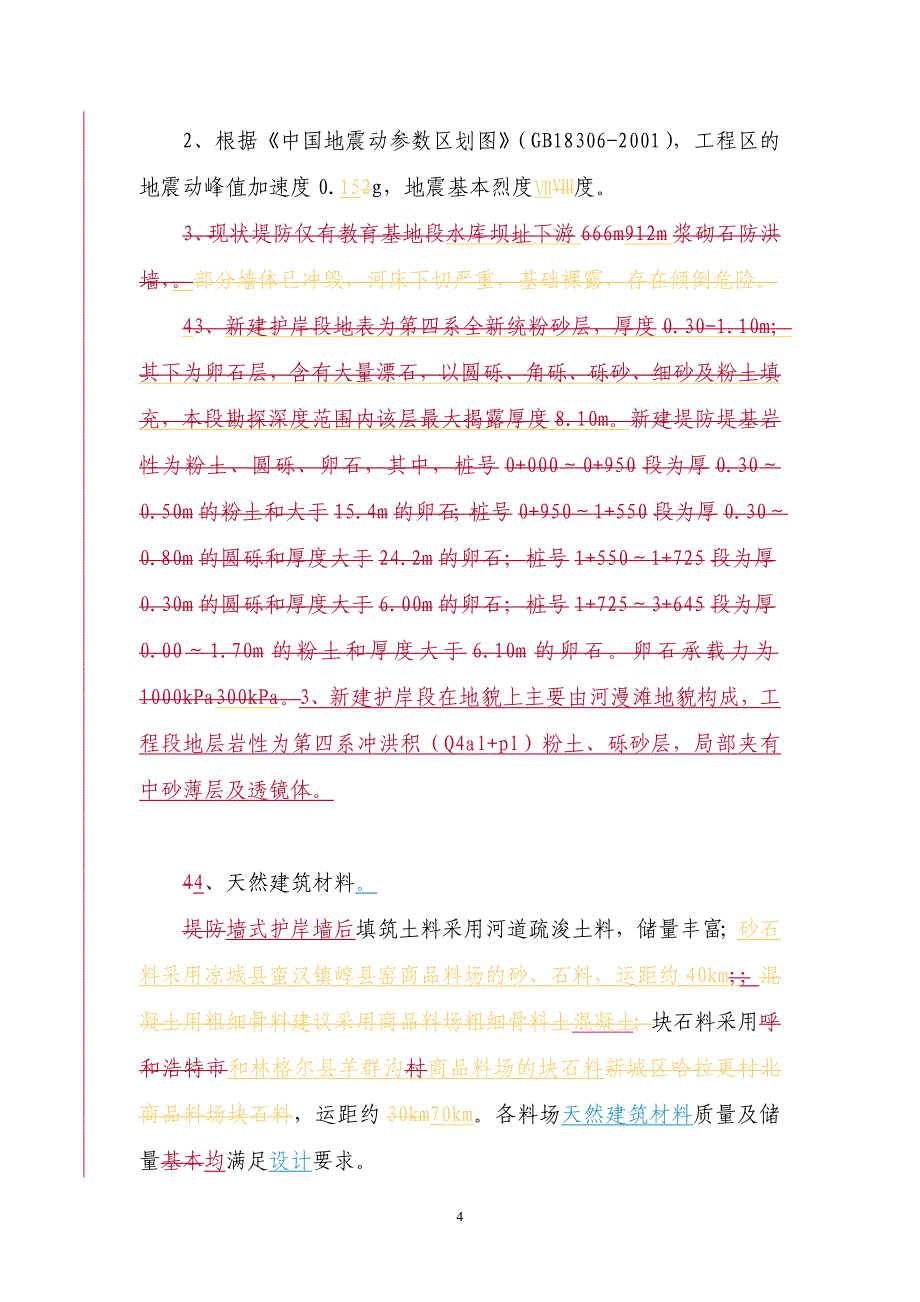 2、根据《中国地震动参数区划图》(GB18306-2001)，工程区的
地震动峰值加速度0.152g，地震基本烈度ⅦⅧ度。
3、现状堤防仅有教育基地段水库坝址下游666m912m浆砌石防洪
墙，。部分墙体已冲毁，河床下切严重，基础裸露，存在倾倒危险。
43、新建护岸段地表为第四系全新统粉砂层，厚度0.30-1.10m；
其下为卵石层，含有大量漂石，以圆砾、角砾、砾砂、细砂及粉土填
充，本段勘探深度范围内该层最大揭露厚度8.10m。新建堤防堤基岩
性为粉土、圆砾、卵石，其中，桩号0+000～0+950段为厚0.30～
0.50m的粉土和大于15.4m的卵石；桩号0+950～1+550段为厚0.30～
0.80m的圆砾和厚度大于24.2m的卵石；桩号1+550～1+725段为厚
0.30m的圆砾和厚度大于6.00m的卵石；桩号1+725～3+645段为厚
0.00～1.70m的粉土和厚度大于6.10m的卵石。卵石承载力为
1000kPa300kPa。3、新建护岸段在地貌上主要由河漫滩地貌构成，工
程段地层岩性为第四系冲洪积（Q4al+pl）粉土、砾砂层，局部夹有
中砂薄层及透镜体。
44、天然建筑材料。
堤防墙式护岸墙后填筑土料采用河道疏浚土料，储量丰富；砂石
料采用凉城县蛮汉镇崞县窑商品料场的砂、石料，运距约40km；；混
凝土用粗细骨料建议采用商品料场粗细骨料土混凝土；块石料采用呼
和浩特市和林格尔县羊群沟村商品料场的块石料新城区哈拉更村北
商品料场块石料，运距约30km70km。各料场天然建筑材料质量及储
量基本均满足设计要求。
4